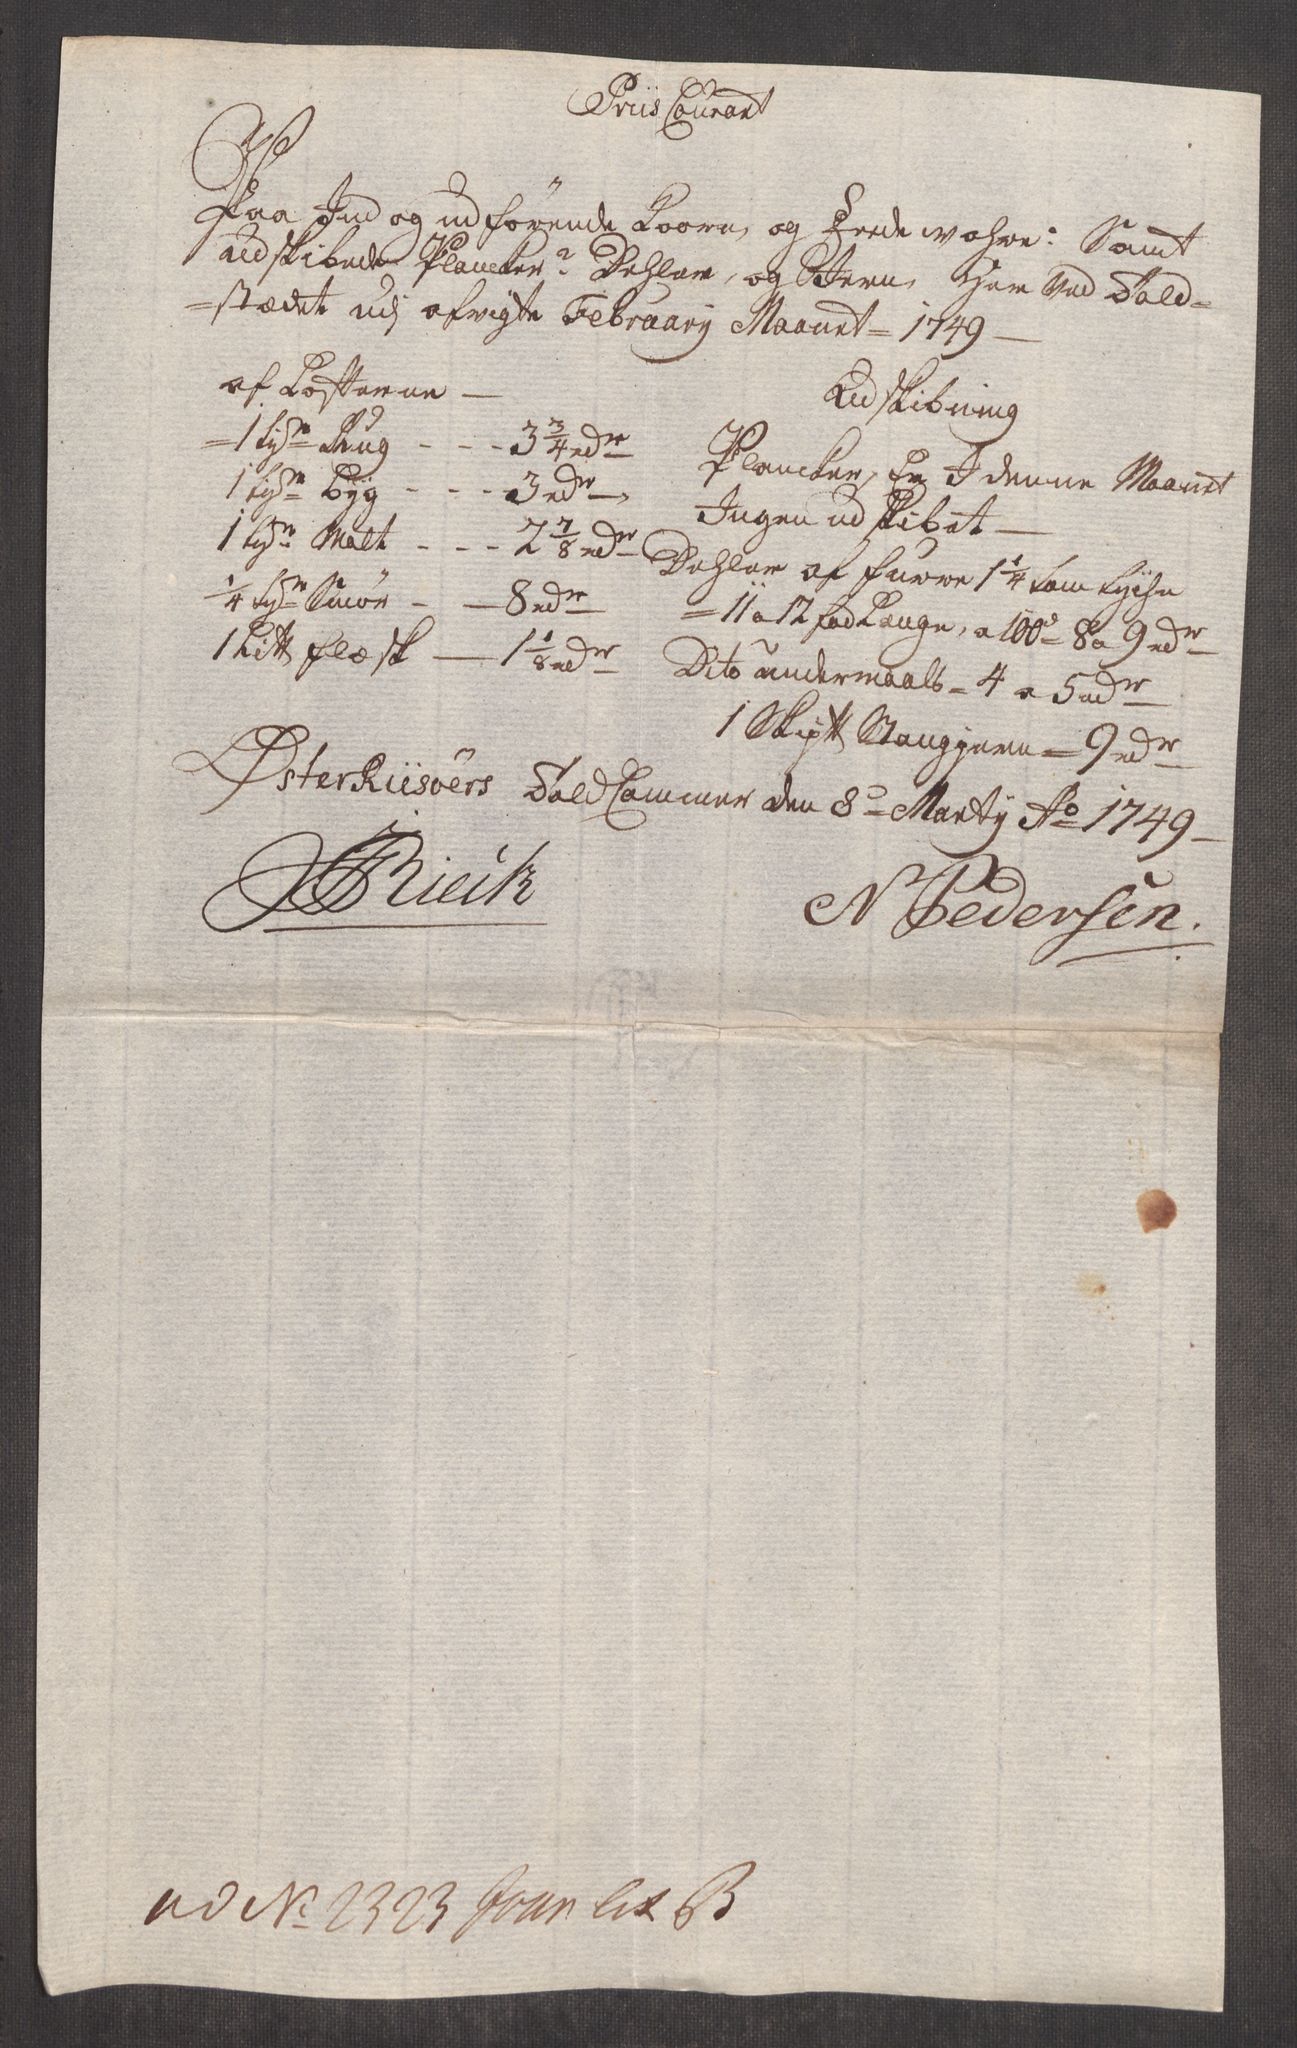 Priis Courant
Paa Ind og udförende Koorn, og Fede wahre: Samt
udskibede Plancker, Dehler, og Jern, Her Ved Told=
=stædet udj afvigte February Maanet = 1749 —
af Kosterne —
=1 tön Rug - - - 3 3/4 rdr
1 tön Byg - - - 3 rdr
1 tön Malt - - - 2 7/8 rdr
1/4 tön Smör - — 8 rdr
1 Litt flæsk — 1 1/8 rdr
Udskibning
Plancker, Er I denne Maanet
Ingen udskibet —
Dehler af furre 1 1/4 tom tyche
= 11 a 12 fod Lange, a 100d = 8 a 9 rdr
Dito undermaals = 4 a 5 rdr
1 Skptt Stangjern = 9 rdr
ØsterRiisöers Told Cammer den 8d Marty Ao 1749 —
Rieck
N Pedersen.
ad No 2323 Jour lit B